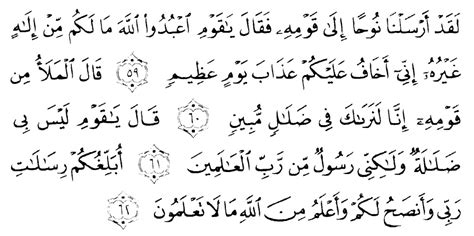 لَقَدۡ أَرۡسَلۡنَا نُوحًا إِلَىٰ قَوۡمِهِۦ فَقَالَ يَٰقَوۡمِ ٱعۡبُدُواْ ٱللَّهَ مَا لَكُم مِّنۡ إِلَٰهٍ
غَيۡرُهُۥٓ إِنِّيٓ أَخَافُ عَلَيۡكُمۡ عَذَابَ يَوۡمٍ عَظِيمٖ ٥٩ قَالَ ٱلۡمَلَأُ مِن
قَوۡمِهِۦٓ إِنَّا لَنَرَىٰكَ فِي ضَلَٰلٖ مُّبِينٖ ٦٠ قَالَ يَٰقَوۡمِ لَيۡسَ بِي
ضَلَٰلَةٞ وَلَٰكِنِّي رَسُولٞ مِّن رَّبِّ ٱلۡعَٰلَمِينَ ٦١ أُبَلِّغُكُمۡ رِسَٰلَٰتِ
رَبِّي وَأَنصَحُ لَكُمۡ وَأَعۡلَمُ مِنَ ٱللَّهِ مَا لَا تَعۡلَمُونَ ٦٢